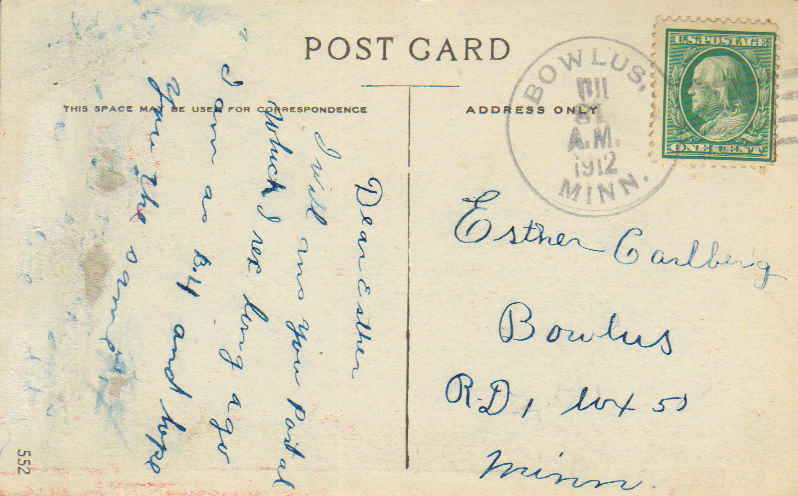 POST CARD
THIS SPACE MAY BE USED FOR CORRESPONDENCE
ADDRESS ONLY
BOWLUS,
A.M.
1912
MINN.
U.S. POSTAGE
ONE CENT
Dear Esther
I will ans you Postal
Which I rex long ago
I am as B.4 and hope
you the same
Esther Carlberg
Bowlus
R.D, 1 Box 50
Minn.
552